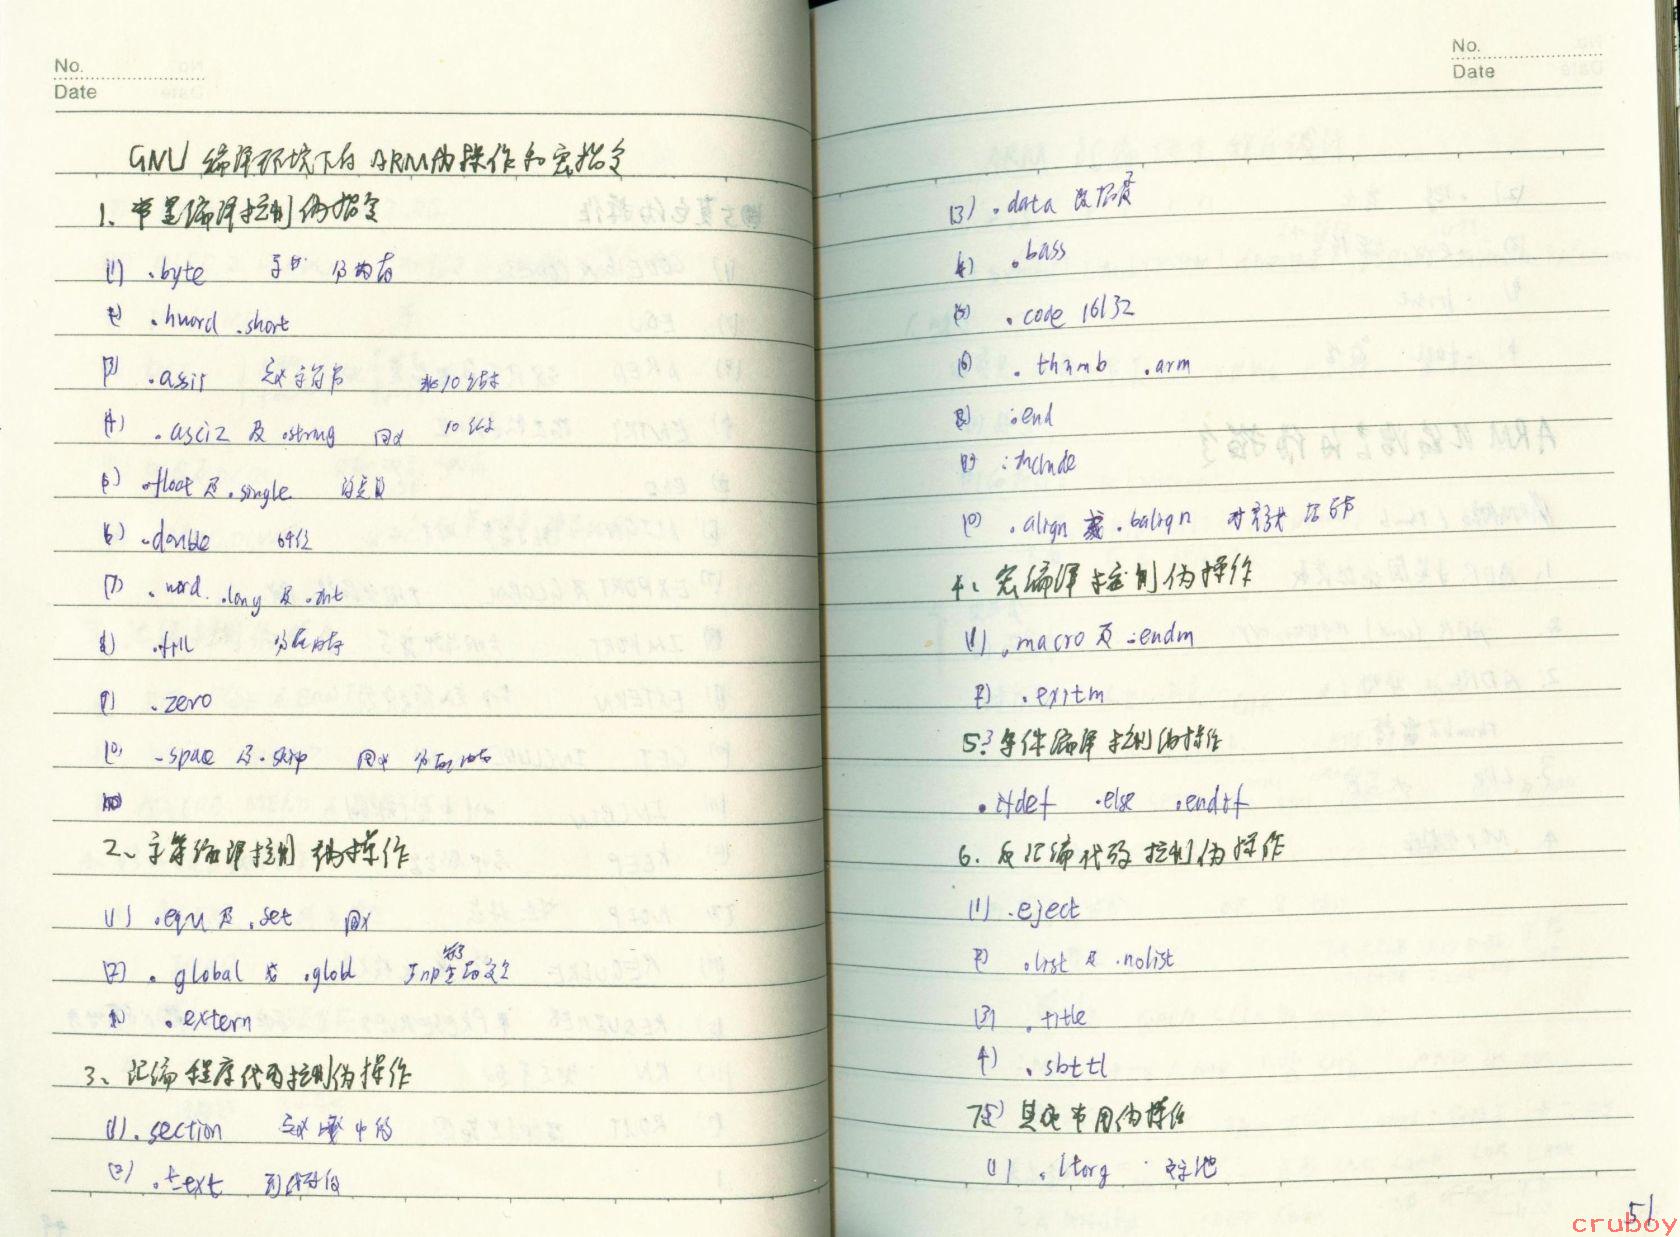 No.
Date
GNU 编译环境下的ARM伪操作和宏指令
1、常量编译控制伪指令
(1) .byte 分内存
.hword .short
(3) .asii 定义字符串 非10结束
(4) .asciz 及 .string 同义 10结束
.float 及 .single
(6) .double 64位
(7) .word. .long 及 .int
.fill 分配内存
(9) .zero
.space 及 .skip 同义 分配内存
2、字符编译控制伪操作
(1) .equ 及 .set 同义
(2) .global 或 .globl
.extern
3、汇编程序代码控制伪操作
(1).section 定义 中的
(2) .text 到代码段
No.
Date
(3) .data 数据段
(4) .bass
(5) .code 16/32
(6) .thumb .arm
(8) .end
.include
.align 或 .balign 对齐
4、宏编译控制伪操作
(1) .macro 及 .endm
(2) .exitm
5 条件编译控制伪操作
.ifdef .else .endif
6、反汇编代码控制伪操作
(1) .eject
(2) .list 及 .nolist
(3) .title
(4) .sbttl
7 其他常用伪操作
(1) .ltorg 文字池
51
cruboy